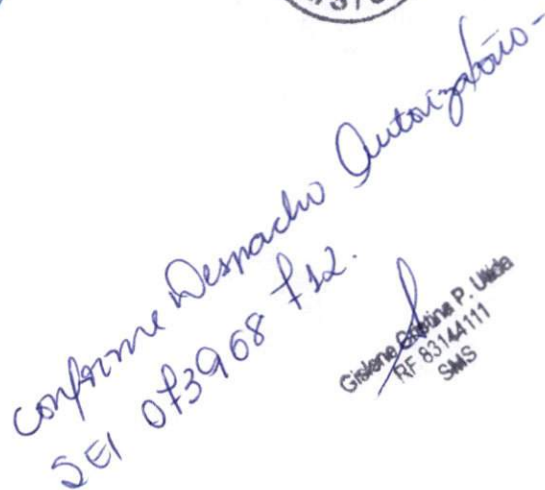 conforme Despacho Autorizatório-
SEI 073968712.
Gislene Cristina P.
RF 83144111
SMS